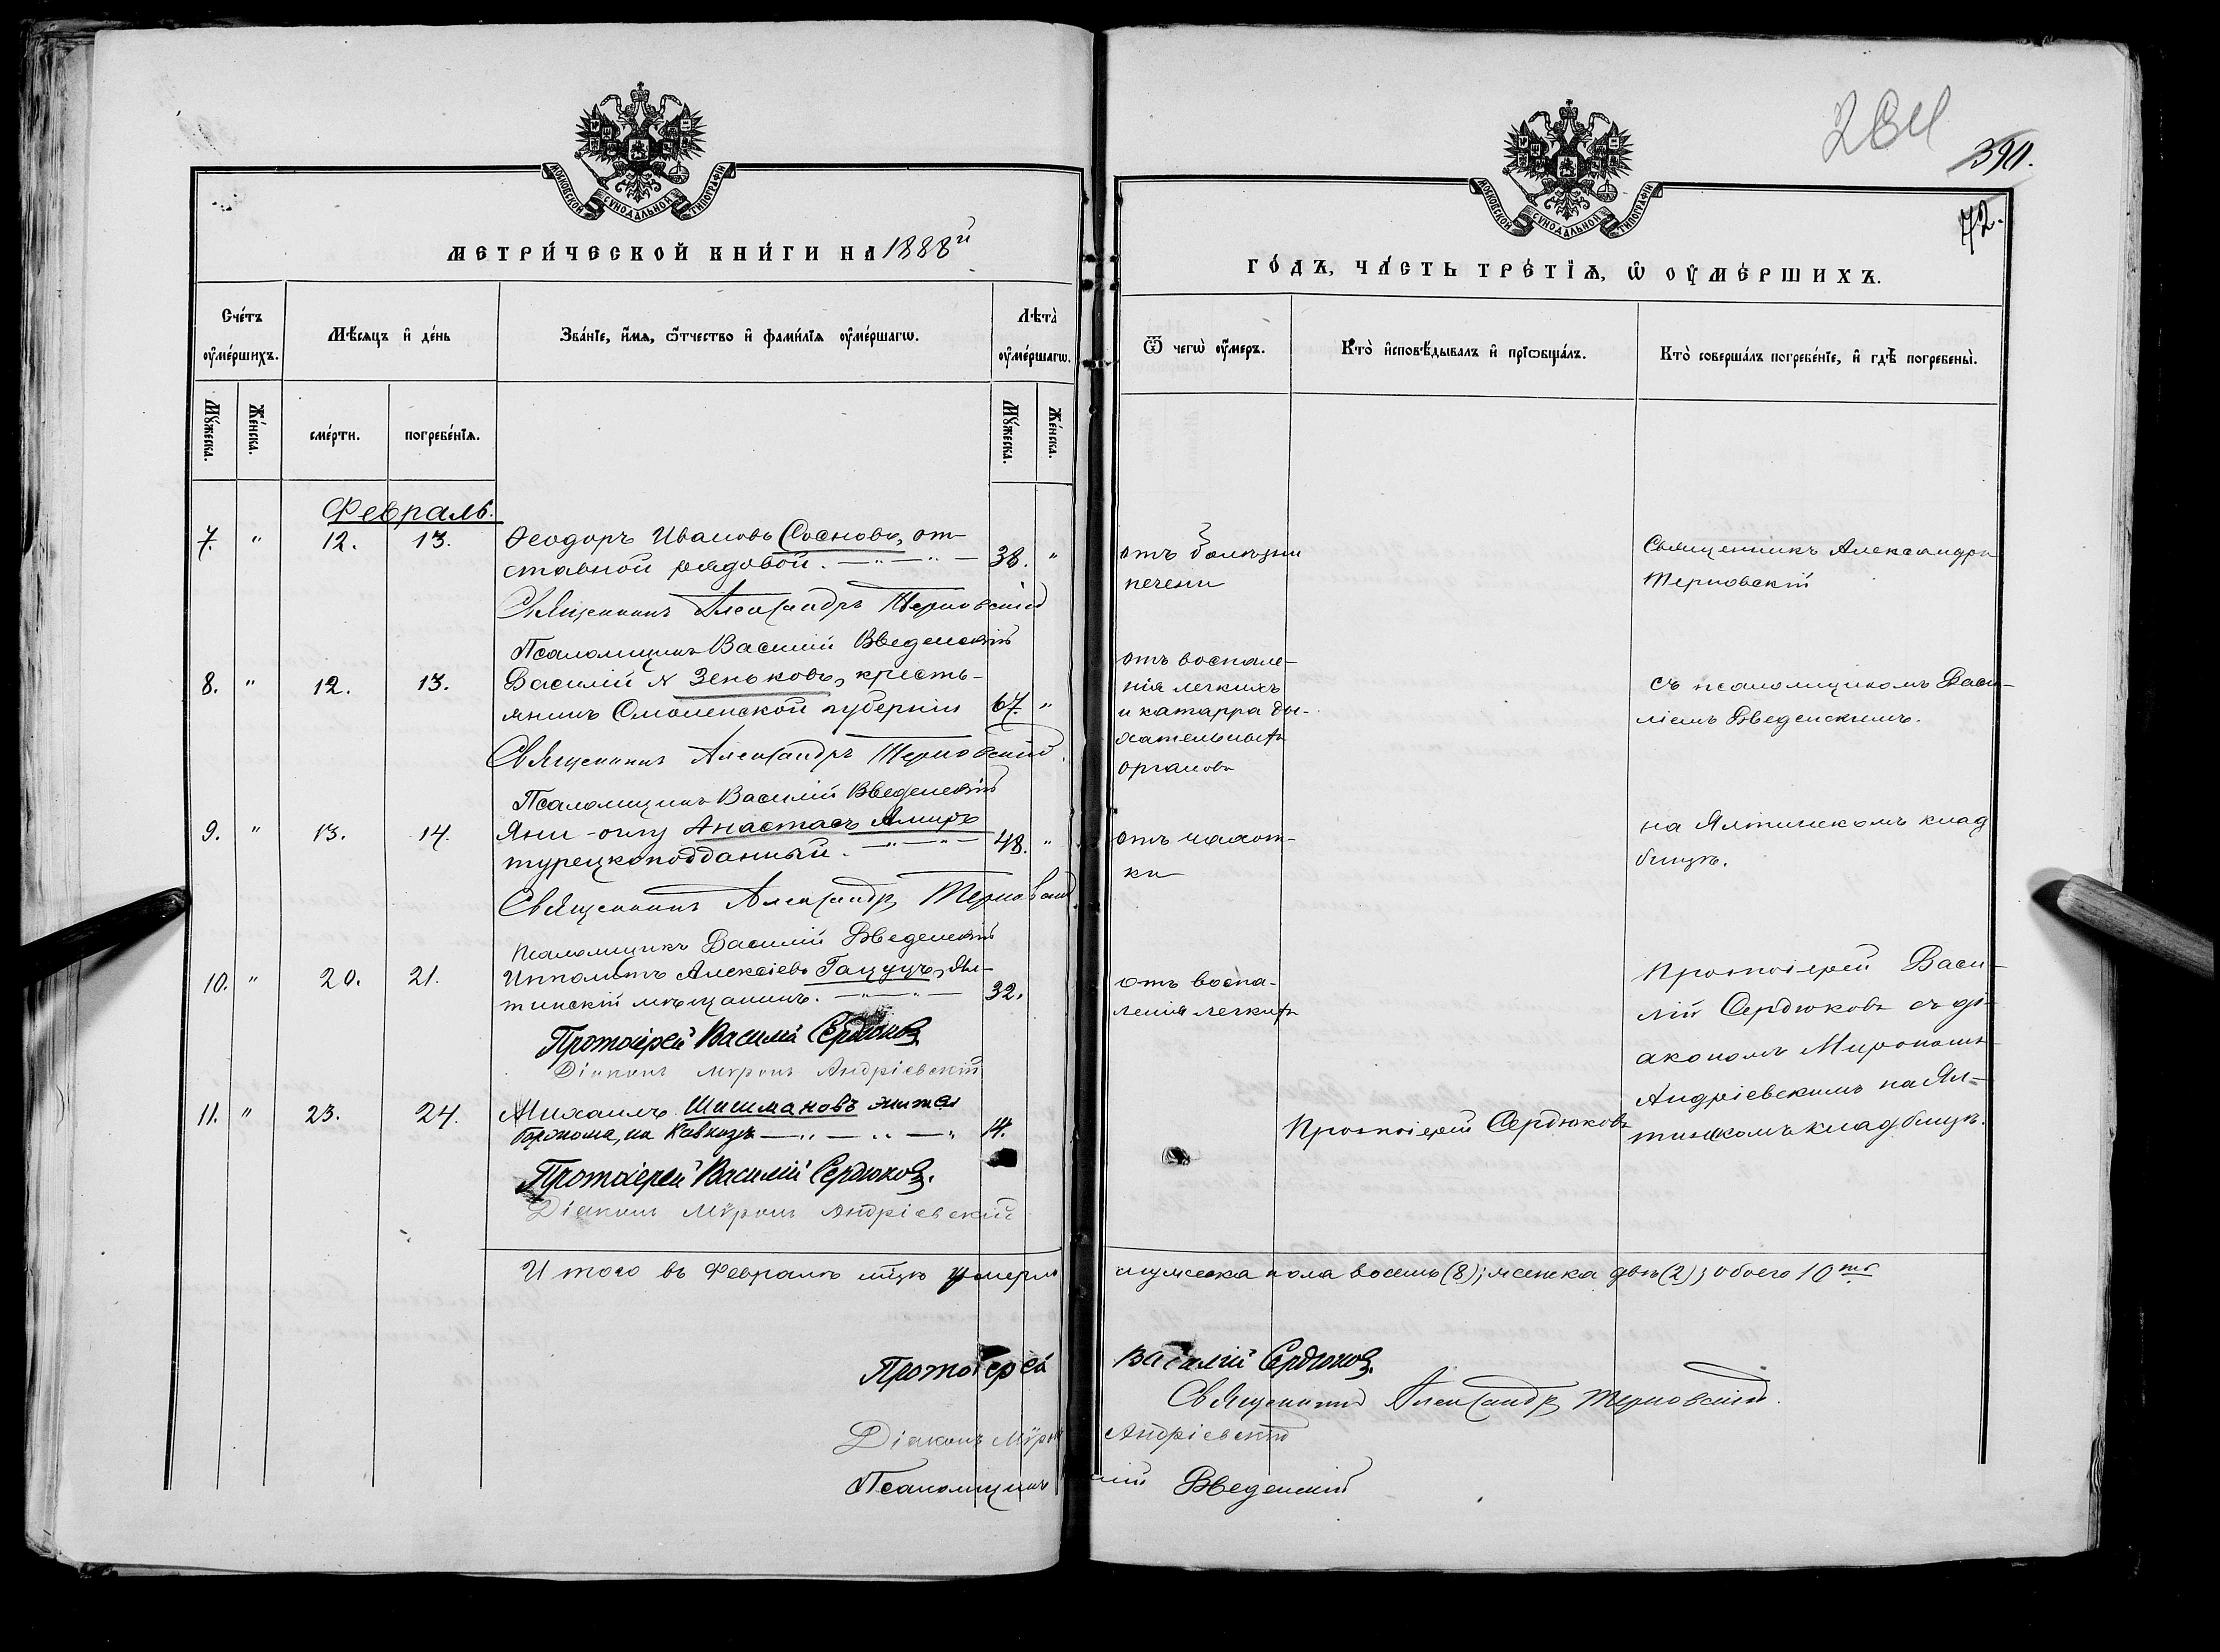 МОСКОВСКОЙ СУНОДАЛЬНОЙ ТИПОГРАФІИ
МЕТРИ́ЧЕСКОЙ КНИ́ГИ НА 1888й
Сче́тъ ᲂу҆ме́ршихъ.
Мѣ́сяцъ и҆ де́нь
Зва́нїе, и҆́мѧ, ѻ҆́тчество и҆ фами́лїѧ ᲂу҆ме́ршагѡ.
Лѣта̀ ᲂу҆ме́ршагѡ.
Мꙋ́жеска.
Же́нска.
сме́рти.
погребе́нїѧ.
Мꙋ́жеска.
Же́нска.
Февраль.
7. " 12. 13. Ѳеодоръ Ивановъ Сосновъ, от-
ставной рядовой. 38. "
Священникъ Александръ Терновскій
Псаломщикъ Василій Введенскій
8. " 12. 13. Василій Зеньковъ, кресть-
янинъ Смоленской губерніи 67. "
Священникъ Александръ Терновскій.
Псаломщикъ Василій Введенскій
9. " 13. 14. Яни-оглу Анастасъ
турецкоподданный. 48. "
Священникъ Александръ Терновскій
Псаломщикъ Василій Введенскій
10. " 20. 21. Ипполитъ Алексіевъ Гацуцъ, Ял-
тинскій мѣщанинъ. 32.
Протоіерей Василій Сердюковъ
Діаконъ Мѵронъ Андріевскій
11. " 23. 24. Михаилъ Шишмановъ жител
Боржома, на Кавказѣ 14.
Протоіерей Василій Сердюковъ.
Діаконъ Мѵронъ Андріевскій
Итого въ Февралѣ мцѣ умерло
Протоіерей
Діаконъ Мѵрон
Псаломщикъ
284
390.
72.
МОСКОВСКОЙ СУНОДАЛЬНОЙ ТИПОГРАФІИ
ГО́ДЪ, ЧА́СТЬ ТРЕ́ТЇѦ, Ѡ҆ ОУ҆МЕ́РШИХЪ.
Ѿ чегѡ̀ ᲂу҆́меръ.
Кто̀ и҆сповѣ́дывалъ и҆ прїѡбща́лъ.
Кто̀ соверша́лъ погребе́нїе, и҆ гдѣ̀ погребены̀.
отъ болѣзни
печени
Священникъ Александръ
Терновскій
отъ воспале-
нія легкихъ
и катарра ды-
хательныхъ
органовъ
съ псаломщикомъ Васи-
ліемъ Введенскимъ.
отъ чахот-
ки
на Ялтинскомъ клад
бищѣ.
отъ воспа-
ленія легкихъ
Протоіерей Васи-
лій Сердюковъ съ ді-
акономъ Мирономъ
Андріевскимъ на Ял-
тинскомъ кладбищѣ.
Протоіерей Сердюковъ
мужеска пола восемь (8); женска двѣ (2); обоего 10ть
Василій Сердюковъ.
Священникъ Александръ Терновскій.
Андріевскій
лій Введенскій